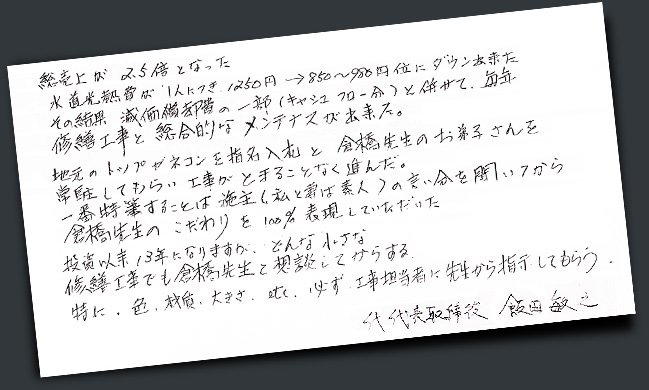 総売上が 2.5倍となった
水道光熱費が 1人につき 1250円→850〜980円位にダウン出来た
その結果 減価償却費の一部(キャシュフロー分)と併せて、毎年
修繕工事と総合的なメンテナスが出来た。
地元のトップゼネコンを指名入札と 倉橋先生のお弟子さんを
常駐してもらい工事がとまることなく進んだ。
一番特筆することは施主(私と妻は素人)の言い分を聞いてから
倉橋先生の こだわりを 100%表現していただいた
投資以来 13年になりますが、どんな小さな
修繕工事でも倉橋先生と相談してからする。
特に、色、材質、大きさ、etc、必ず、工事担当者に先生から指示してもらう、
代表取締役 飯田敏之